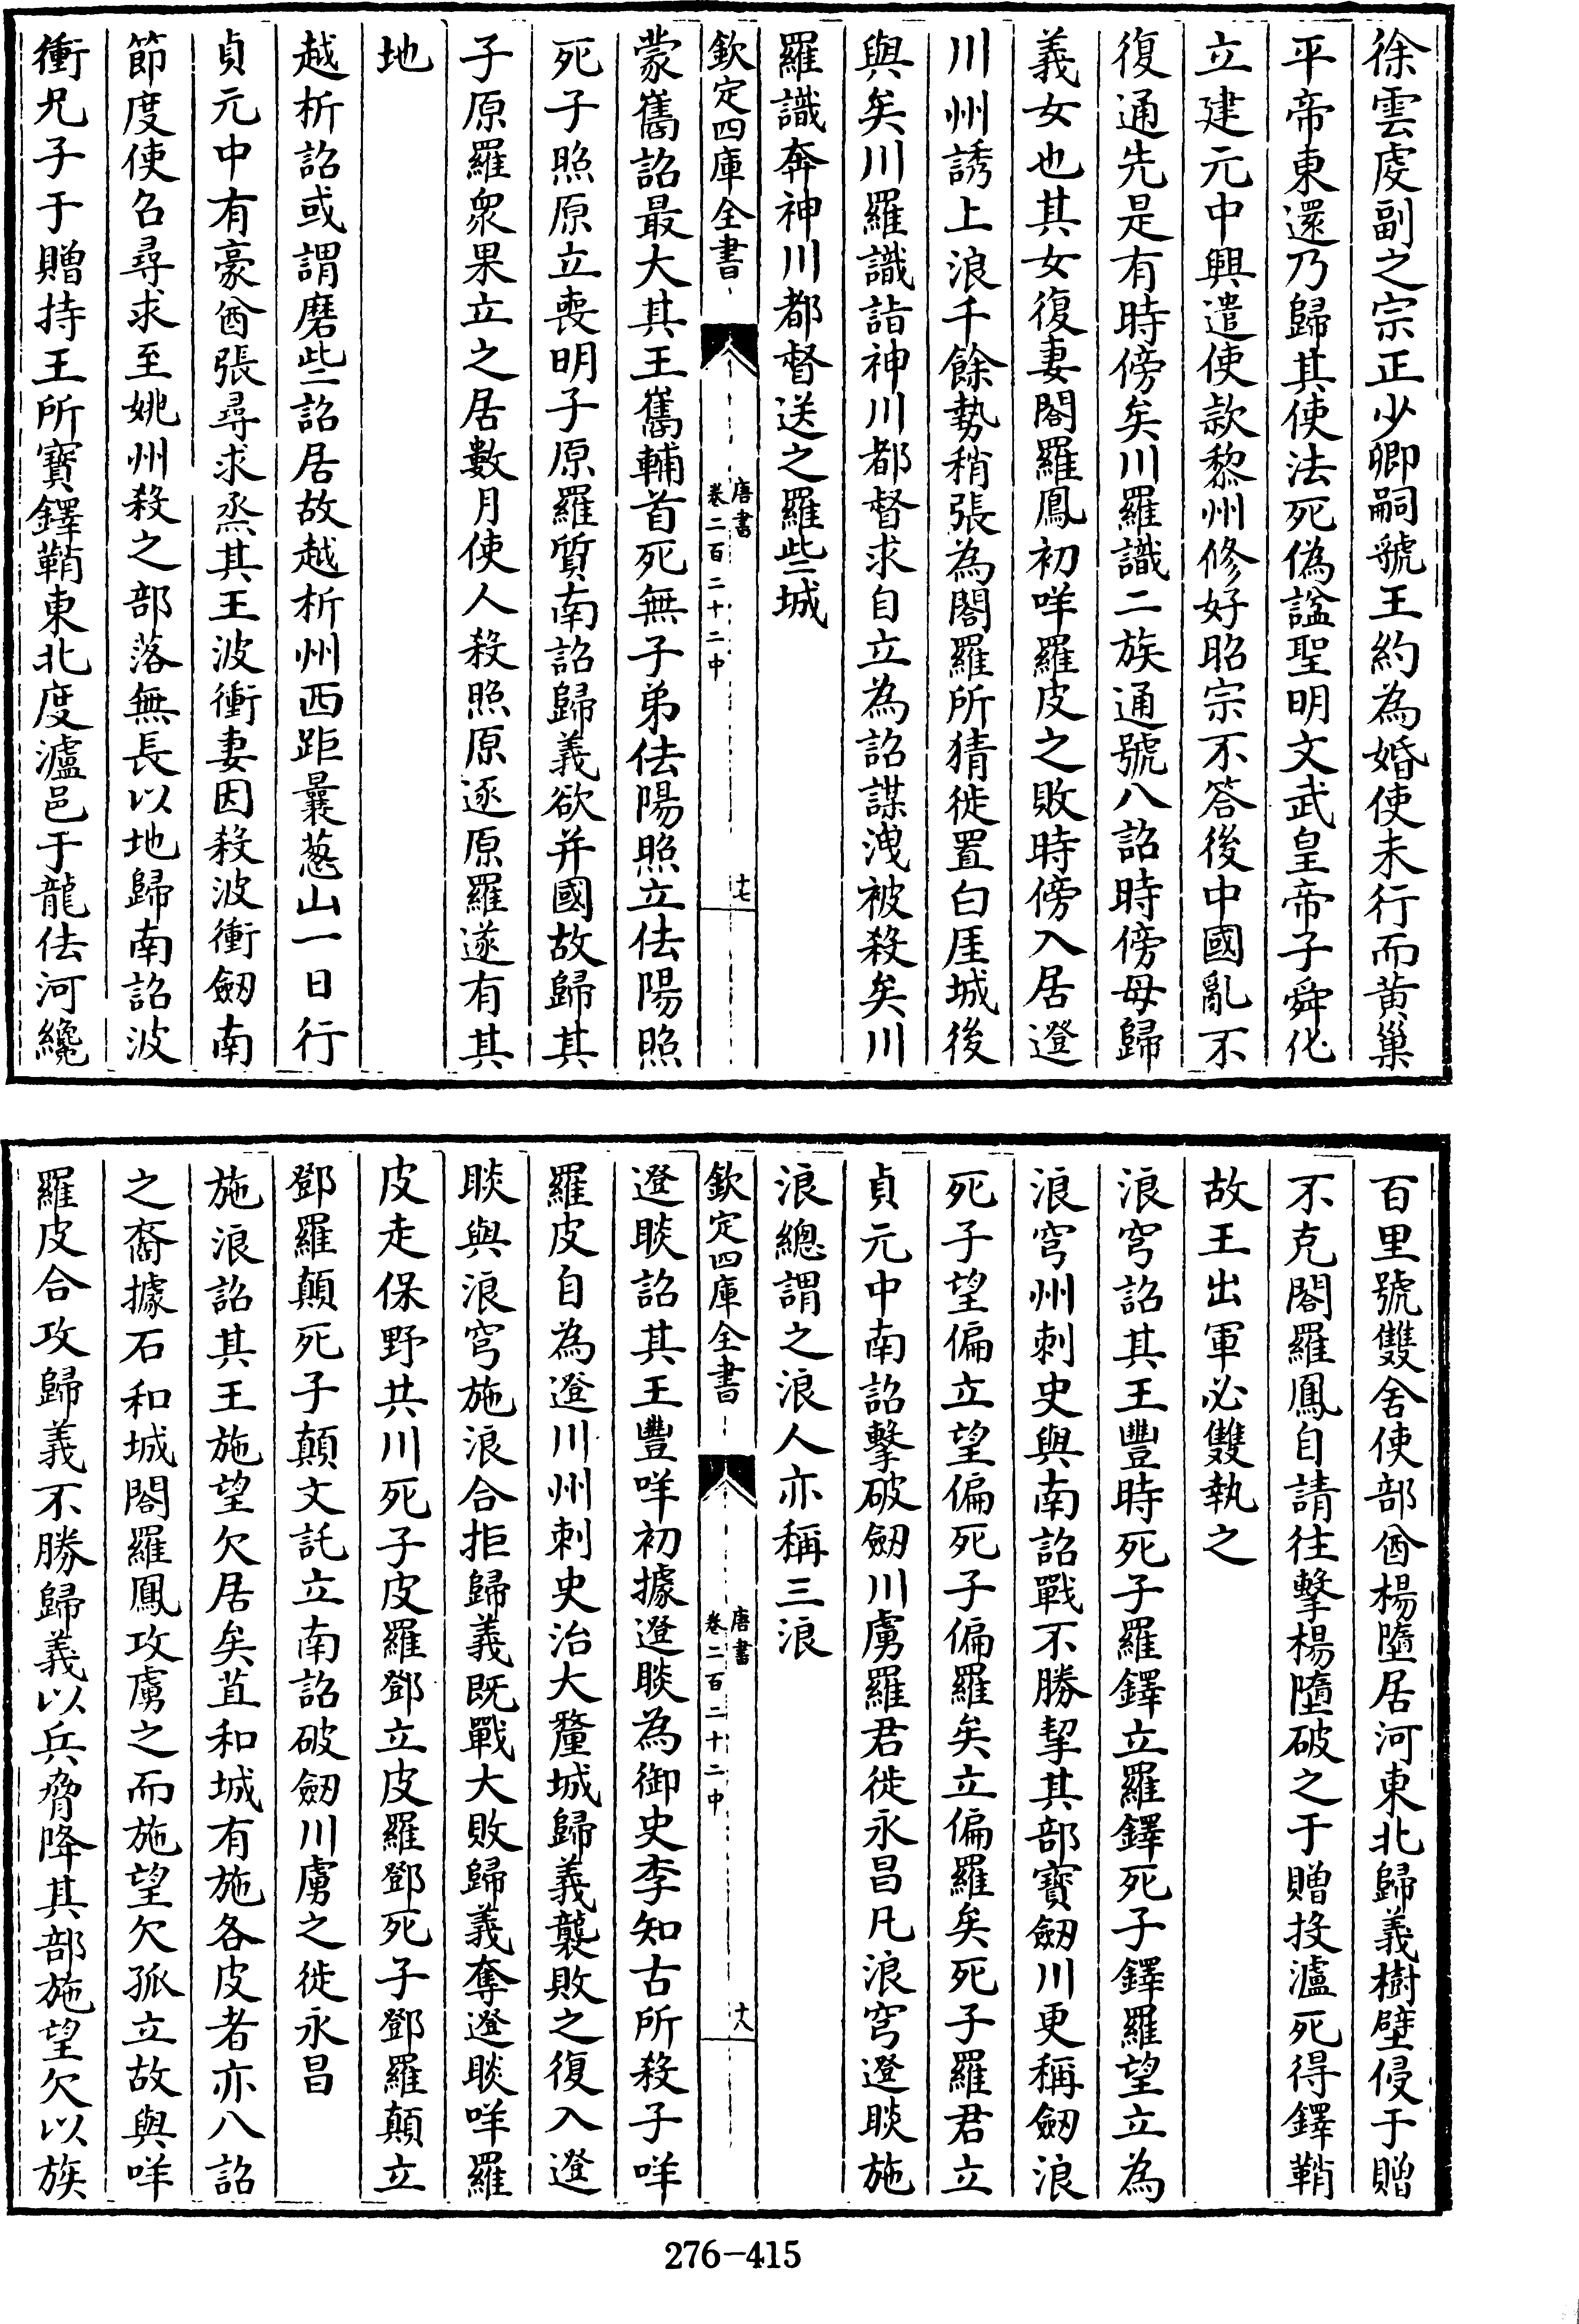 徐雲䖍副之宗正少卿嗣虢王約為婚使未行而黄巢
平帝東還乃歸其使法死偽諡聖明文武皇帝子舜化
立建元中興遣使款黎州修好昭宗不答後中國亂不
復通先是有時傍矣川羅識二族通號八詔時傍母歸
義女也其女復妻閤羅鳳初咩羅皮之敗時傍入居邆
川州誘上浪千餘勢稍張為閤羅所猜徙置白厓城後
與矣川羅識詣神川都督求自立為詔謀洩被殺矣川
羅識奔神川都督送之羅些城
欽定四庫全書
唐書
卷二百二十二中
十七
蒙巂詔最大其王巂輔首死無子弟佉陽照立佉陽照
死子照原立喪明子原羅質南詔歸義欲并國故歸其
子原羅衆果立之居數月使人殺照原逐原羅遂有其
地
越析詔或謂磨些詔居故越析州西距曩葱山一日行
貞元中有豪酋張尋求烝其王波衝妻因殺波衝劒南
節度使召尋求至姚州殺之部落無長以地歸南詔波
衝兄子于贈持王所寶鐸鞘東北度瀘邑于龍佉河纔
百里號雙舍使部酋楊墮居河東北歸義樹壁侵于贈
不克閤羅鳳自請往擊楊墮破之于贈投瀘死得鐸鞘
故王出軍必雙執之
浪穹詔其王豐時死子羅鐸立羅鐸死子鐸羅望立為
浪穹州刺史與南詔戰不勝挈其部寶劒川更稱劒浪
死子望偏立望偏死子偏羅矣立偏羅矣死子羅君立
貞元中南詔擊破劒川虜羅君徙永昌凡浪穹邆賧施
浪總謂之浪人亦稱三浪
欽定四庫全書
唐書
卷二百二十二中
十八
邆賧詔其王豐咩初據邆賧為御史李知古所殺子咩
羅皮自為邆川州刺史治大釐城歸義襲敗之復入邆
賧與浪穹施浪合拒歸義既戰大敗歸義奪邆賧咩羅
皮走保野共川死子皮羅鄧立皮羅鄧死子鄧羅顛立
鄧羅顛死子顛文託立南詔破劒川虜之徙永昌
施浪詔其王施望欠居矣苴和城有施各皮者亦八詔
之裔據石和城閤羅鳳攻虜之而施望欠孤立故與咩
羅皮合攻歸義不勝歸義以兵脅降其部施望欠以族
276-415